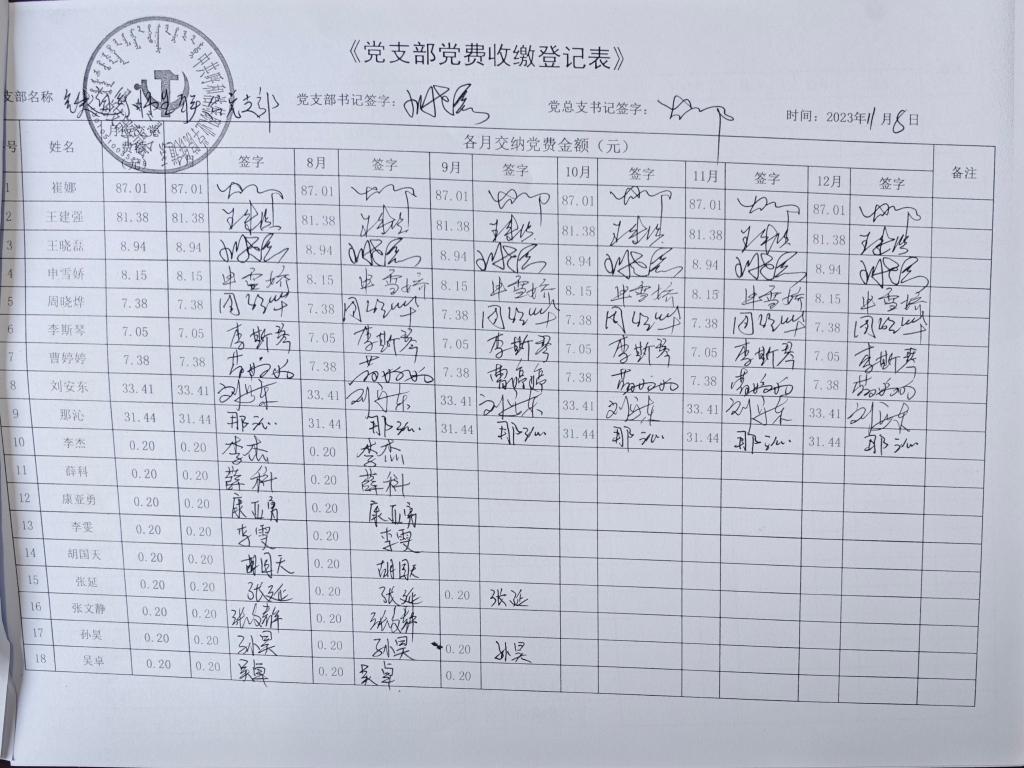 《党支部党费收缴登记表》
支部名称 支部 党支部书记签字: 党总支书记签字: 时间: 2023年11月8日
号 姓名 月应交党费额 各月交纳党费金额（元） 备注
签字 8月 签字 9月 签字 10月 签字 11月 签字 12月 签字
1 崔娜 87.01 87.01 87.01 87.01 87.01 87.01 87.01
2 王建强 81.38 81.38 王建强 81.38 王建强 81.38 王建强 81.38 王建强 81.38 王建强 81.38 王建强
3 王晓磊 8.94 8.94 8.94 8.94 8.94 8.94 8.94
4 申雪娇 8.15 8.15 申雪娇 8.15 申雪娇 8.15 申雪娇 8.15 申雪娇 8.15 申雪娇 8.15 申雪娇
5 周晓烨 7.38 7.38 周晓烨 7.38 周晓烨 7.38 周晓烨 7.38 周晓烨 7.38 周晓烨 7.38 周晓烨
6 李斯琴 7.05 7.05 李斯琴 7.05 李斯琴 7.05 李斯琴 7.05 李斯琴 7.05 李斯琴 7.05 李斯琴
7 曹婷婷 7.38 7.38 曹婷婷 7.38 曹婷婷 7.38 曹婷婷 7.38 曹婷婷 7.38 曹婷婷 7.38 曹婷婷
8 刘安东 33.41 33.41 刘安东 33.41 刘安东 33.41 刘安东 33.41 刘安东 33.41 刘安东 33.41 刘安东
9 那沁 31.44 31.44 那沁 31.44 那沁 31.44 那沁 31.44 那沁 31.44 那沁 31.44 那沁
10 李杰 0.20 0.20 李杰 0.20 李杰
11 薛科 0.20 0.20 薛科 0.20 薛科
12 康亚勇 0.20 0.20 康亚勇 0.20 康亚勇
13 李雯 0.20 0.20 李雯 0.20 李雯
14 胡国天 0.20 0.20 胡国天 0.20 胡国天
15 张延 0.20 0.20 张延 0.20 张延 0.20 张延
16 张文静 0.20 0.20 张文静 0.20 张文静
17 孙昊 0.20 0.20 孙昊 0.20 孙昊 0.20 孙昊
18 吴卓 0.20 0.20 吴卓 0.20 吴卓 0.20